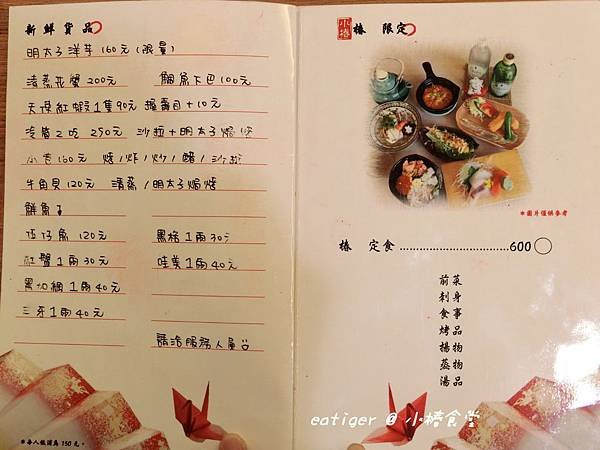 新鮮貨品
明太子洋芋 160元 (限量)
清蒸花蟹 200元 鯛魚下巴 100元
天使紅蝦 1隻 90元 握壽司 +10元
冷盤2吃 250元 沙拉+明太子焗烤
小卷 160元 烤/炸/炒/鹽/沙拉
牛角貝 120元 清蒸/明太子焗烤
鮮魚
120元 黑格 1兩 30元
紅蟹 1兩 30元 1兩 40元
黑加網 1兩 40元
三牙 1兩 40元
請洽服務人員
*每人低消為 150 元。
小椿
椿 限定
*圖片僅供參考
椿 定食 ..................... 600
前菜
刺身
食事
烤品
揚物
蒸物
湯品
eatiger @ 小樁食堂